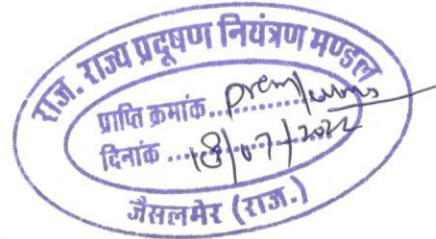 राज. राज्य प्रदूषण नियंत्रण मण्डल
प्राप्ति क्रमांक..............
दिनांक ....18/07/2022
जैसलमेर (राज.)